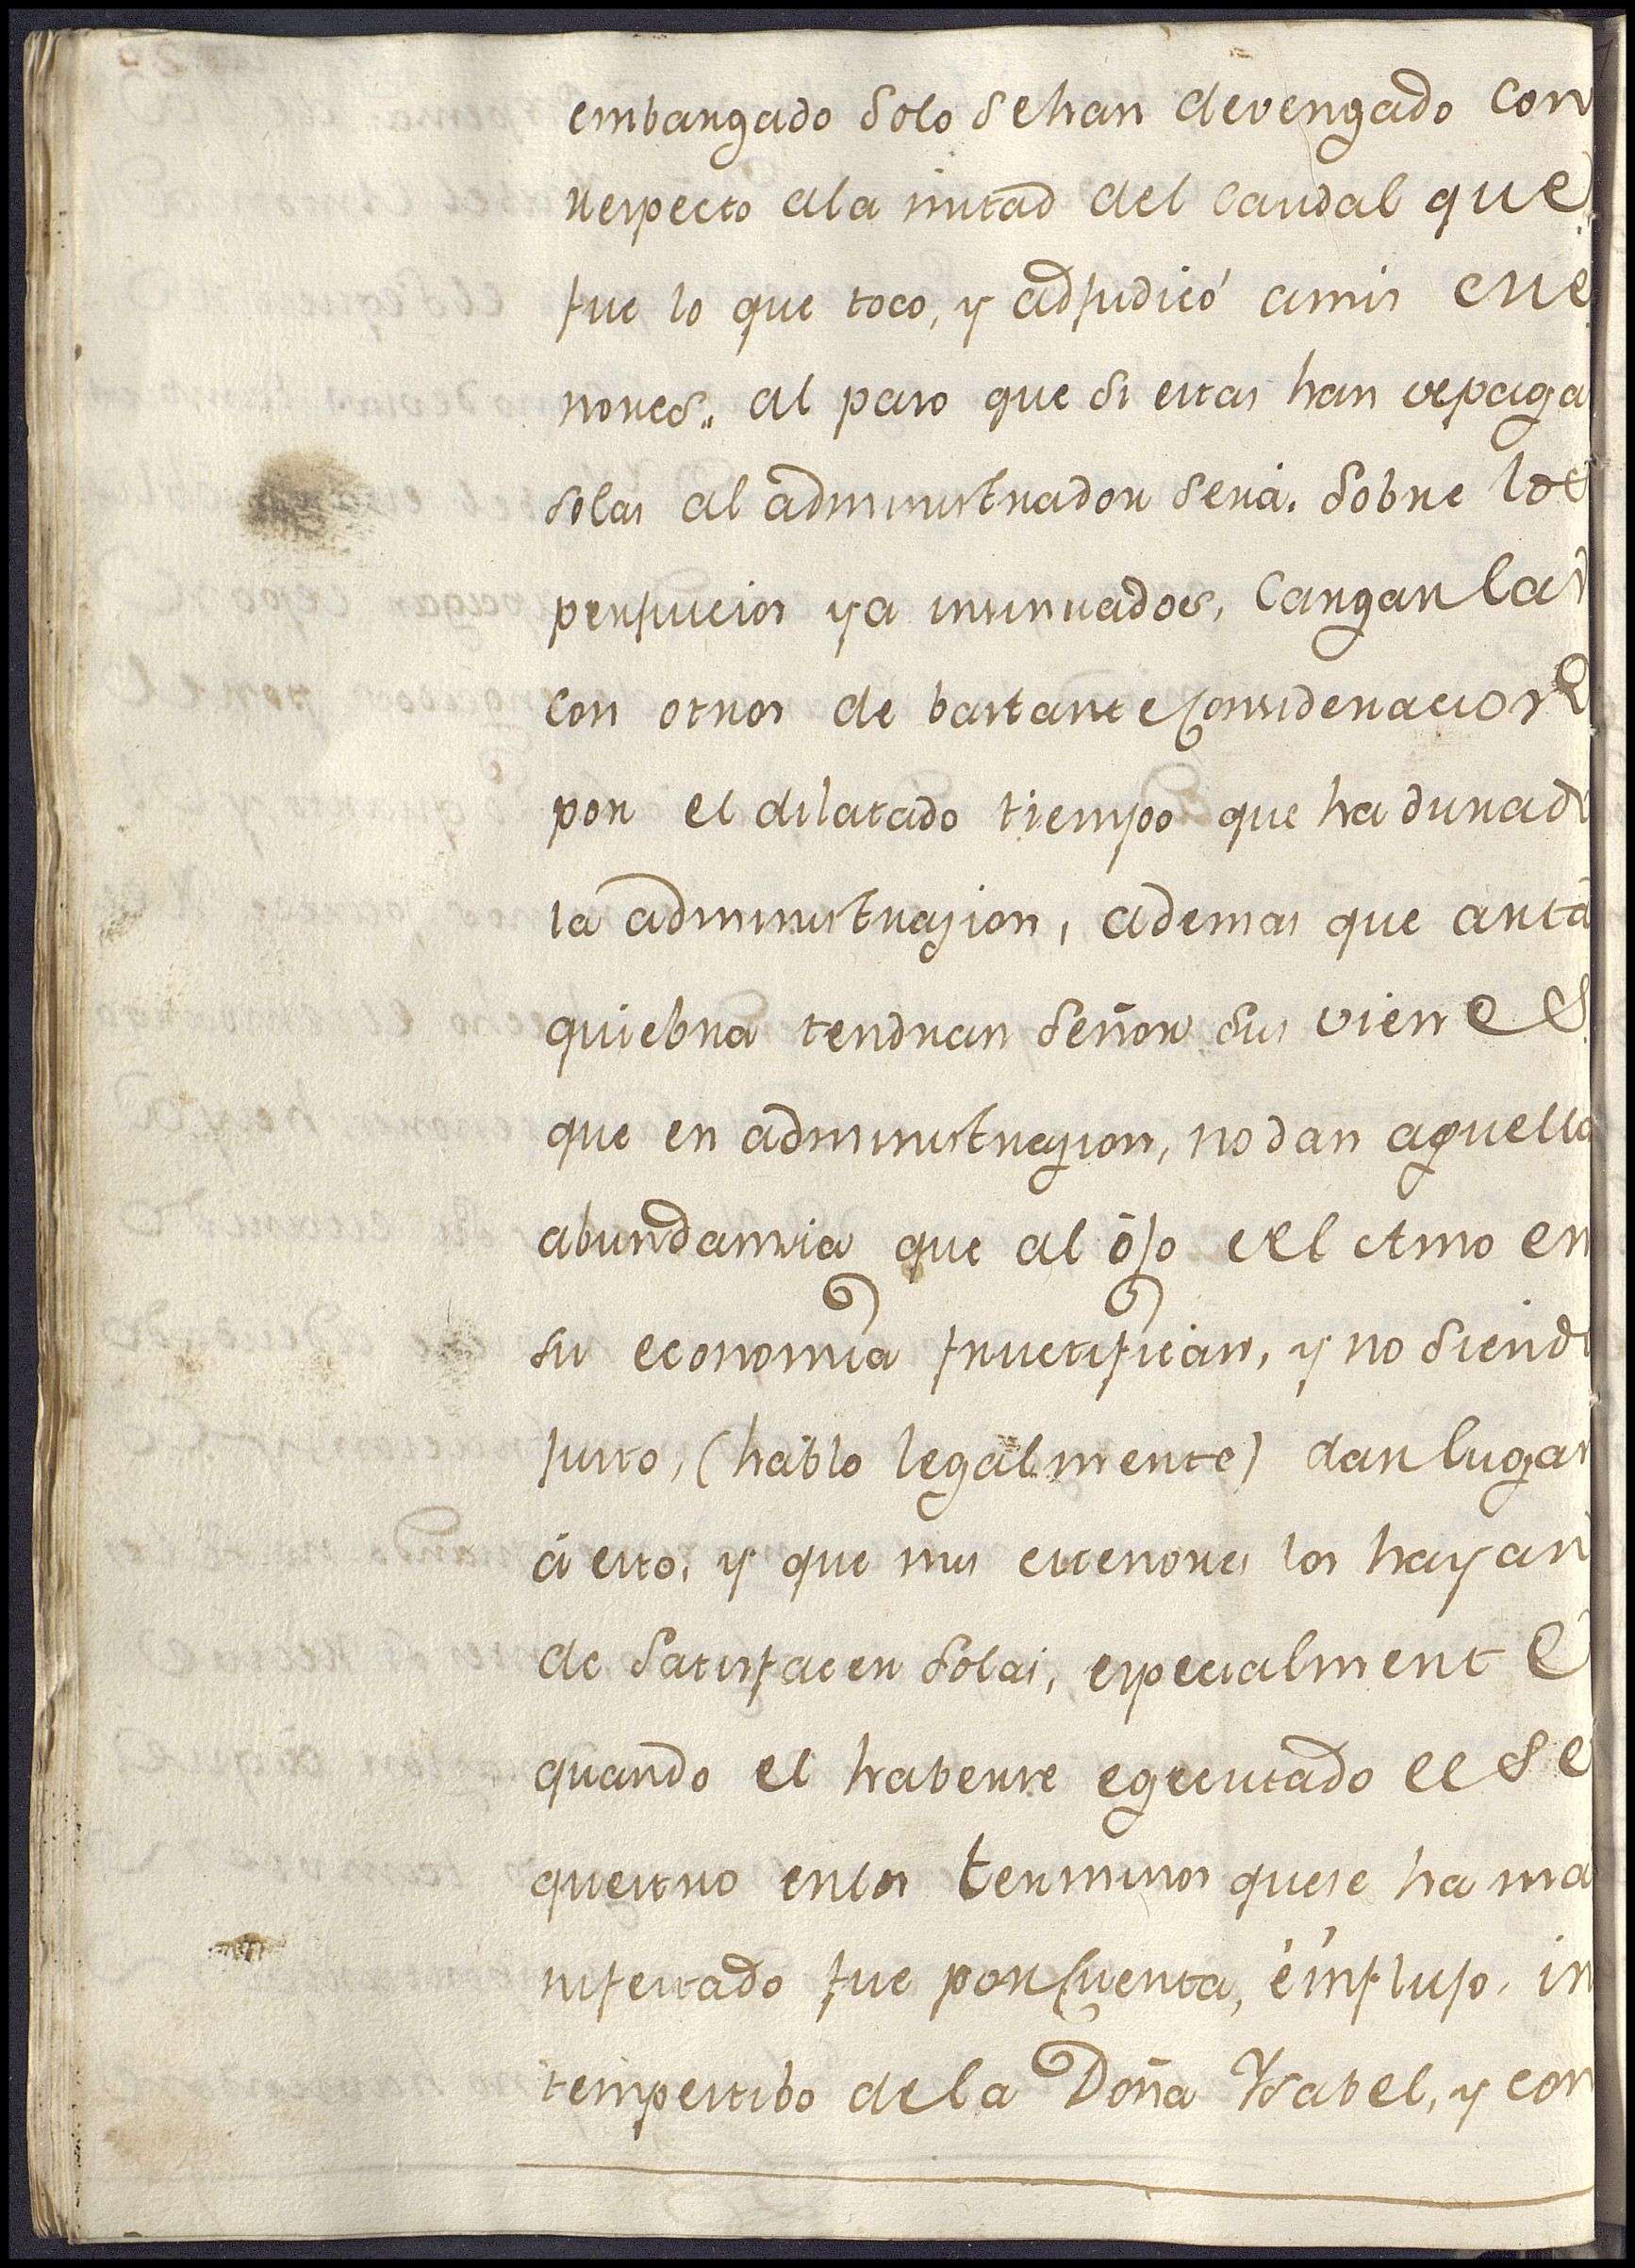 embargado solo sehan devengado con
respecto ala mitad del caudal que
fue lo que toco, y adjudicó amis cue
nores. al paso que si estas han depaga
solas al administrador será. sobre los
perjucios ya insinuados, Cargarlas
con otros de bastante Consideracion
por el dilatado tiempo que ha durado
la administrazion, ademas que anta
quiebra tendran señor sus vienes
que en administrazion, no dan aquella
abundancia que al ójo del Amo en
su economia fructifican, y no siendo
justo, (hablo legalmente) dan lugar
á esto, y que mis menores los hayan
de satisfacer solas, especialmente
quando el haberse egecutado el se
questro enlos terminos quese ha ma
nifestado fue por Cuenta, é influjo, in
tempestibo dela Doña Ysabel, y con